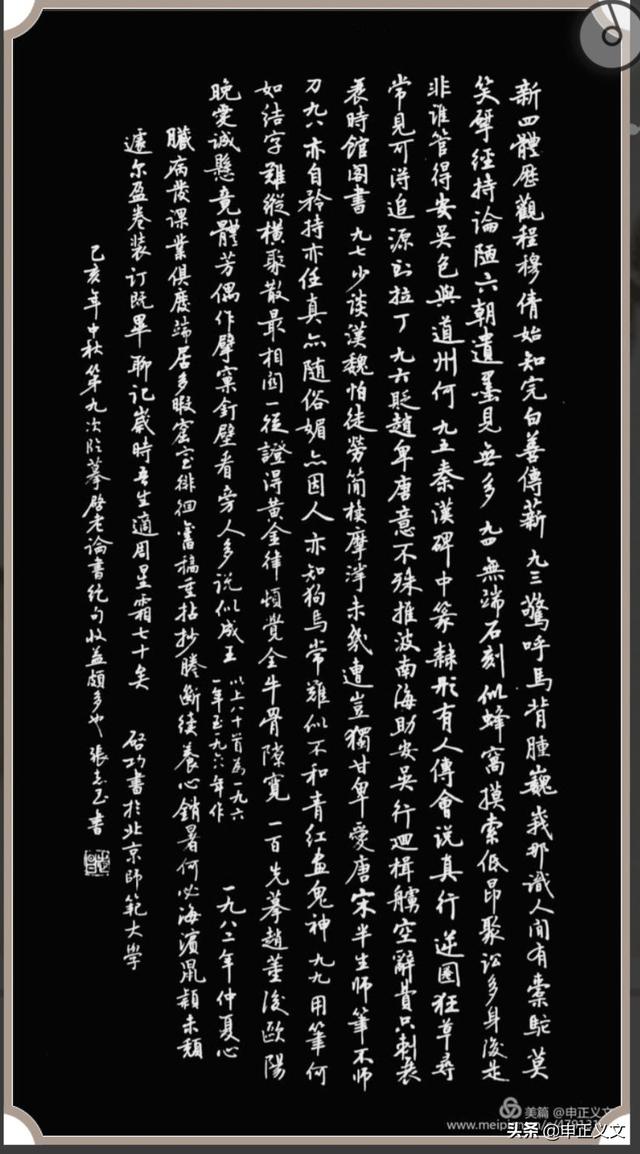 新四體歷觀程穆倩始知完白善傳薪 九三 驚呼馬背腫巍峩那識人間有橐駝莫
笑揅經持論陋六朝遺墨見無多 九四 無端石刻似蜂窩摸索低昂聚訟多身後是
非誰管得安吳包與道州何 九五 秦漢碑中篆隸形有人傅會說真行逆圈狂草尋
常見可得追源到拉丁 九六 貶趙卑唐意不殊推波南海助安吳行迴楫艣空辭費只刺衰
衰時館閣書 九七 少談漢魏怕徒勞簡櫝摩挲未幾遭豈獨甘卑愛唐宋半生師筆不師
刀 九八 亦自矜持亦任真亦隨俗媚亦因人亦知狗馬常難似不和青紅畫鬼神 九九 用筆何
如結字難縱橫聚散最相關一從證得黃金律頓覺全牛骨隙寬 一百 先摹趙董後歐陽
晚愛誠懸竟體芳偶作擘窠釘壁看旁人多說似成王 以上八十首為一九六一年至一九六年作 一九八二年仲夏心
臟病發課業俱廢端居多暇徘徊舊稿重拈抄謄斷續養心銷暑何必海濱鼠穎未頹
遽尔盈卷裝訂既畢聊記歲時吾生適周星霜七十矣 啓功書於北京師範大學
己亥年中秋第九次臨摹啓老論書絕句收益頗多也 張志玉書
美篇 @申正义文
www.meip
头条 @申正义文